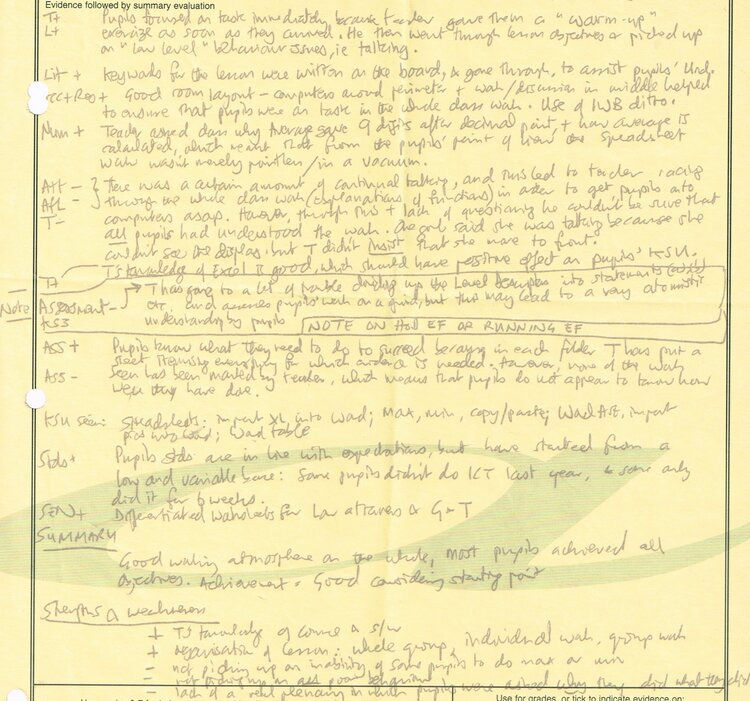 Evidence followed by summary evaluation
T+ Pupils focused on task immediately because teacher gave them a "warm-up"
L+ exercise as soon as they arrived. He then went through lesson objectives & picked up
on "low level" behaviour issues, ie talking.
Lit + Keywords for the lesson were written on the board, & gone through, to assist pupils' und.
Acc+Res+ Good room layout - computers around perimeter + wah/discussion in middle helped
to ensure that pupils were on task in the whole class wah. Use of IWB ditto.
Num + Teacher asked class why Average gave 9 digits after decimal point, + how average is
calculated, which meant that from the pupils' point of view the spreadsheet
wah wasn't merely pointless/in a vacuum.
Att - There was a certain amount of continual talking, and this led to teacher racing
AfL - through the whole class wah (explanations of functions) in order to get pupils onto
T - computers asap. However, through this + lack of questioning he couldn't be sure that
all pupils had understood the wah. One girl said she was talking because she
couldn't see the display, but T didn't insist that she move to front.
T+ T's knowledge of Excel is good, which should have positive effect on pupils' KSU.
Note Assessment - T has gone to a lot of trouble dividing up the Level Descriptors into statements
KS3 etc. and assesses pupils' wah on a grid, but this may lead to a very atomistic
understanding by pupils NOTE ON HoD EF OR RUNNING EF
Ass + Pupils know what they need to do to succeed because in each folder T has put a
sheet itemising everything for which evidence is needed. However, none of the wah
Ass - seen has been marked by teacher, which means that pupils do not appear to know how
well they have done.
KSU seen: Spreadsheets: import XL into Word; Max, min, copy/paste; WordArt, import
pics into Word; Word table
Stds+ Pupils stds are in line with expectations, but have started from a
low and variable base: Some pupils didn't do ICT last year, & some only
did it for 6 weeks.
SEN+ Differentiated worksheets for Low attainers & G+T
SUMMARY
Good working atmosphere on the whole, most pupils achieved all
objectives. Achievement = Good considering starting point
Strengths & weaknesses
+ T's knowledge of course & s/w
+ organisation of lesson: whole group, individual wah, group wah
- not picking up on inability of some pupils to do max or min
- not picking up on all poor behaviour
- lack of a real plenary in which pupils were asked why they did what they did
Use for grades, or tick to indicate evidence on: